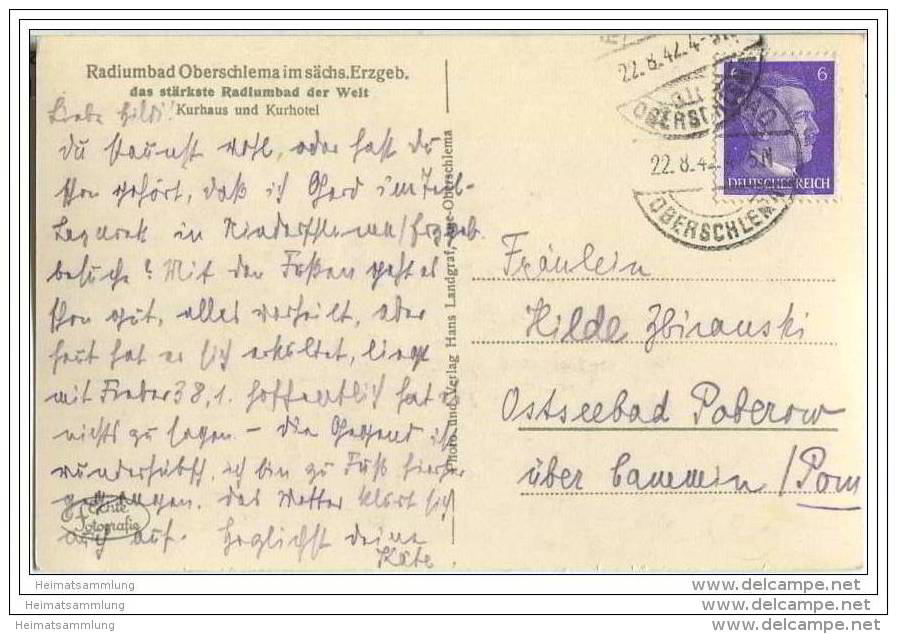 Radiumbad Oberschlema im sächs. Erzgeb.
das stärkste Radiumbad der Welt
Kurhaus und Kurhotel
Liebe Hildi!
Du staunst wohl, oder hast du
schon gehört, daß ich Gerd im
Lazarett in Niederschlema/Erzgeb.
besuche? Mit den Füßen geht es
schon gut, alles verheilt, aber
heut hat er sich erkältet, liegt
mit Fieber 38,1. Hoffentlich hat es
nichts zu sagen. – Die Gegend ist
wunderhübsch, ich bin zu Fuß hierher
gegangen. Das Wetter klärt sich
auch auf. Herzlichst deine
Käte.
Echte
Fotografie
Photo und Verlag Hans Landgraf, Oberschlema
22.8.42.4-5N
OBERSCHLEMA
22.8.42 5N
OBERSCHLEMA
6
DEUTSCHES REICH
Fräulein
Hilde Zbiranski
Ostseebad Poberow
über Cammin/Pom
Heimatsammlung
Heimatsammlung
Heimatsammlung
www.delcampe.net
www.delcampe.net
www.delcampe.net